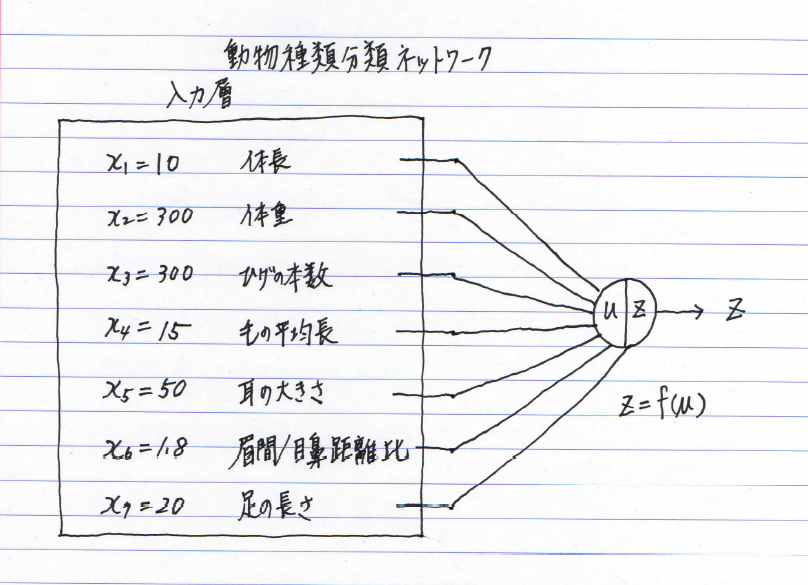 動物種類分類ネットワーク
入力層
x₁=10 体長
x₂=300 体重
x₃=300 ひげの本数
x₄=15 毛の平均長
x₅=50 耳の大きさ
x₆=1.8 眉間/目鼻距離比
x₇=20 足の長さ
u z → z
z=f(u)